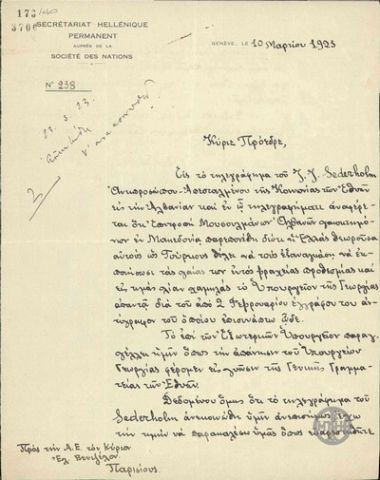 173/
3706
SECRÉTARIAT HELLÉNIQUE
PERMANENT
AUPRÈS DE LA
SOCIÉTÉ DES NATIONS
GENÈVE, LE 10 Μαρτίου 1923
Nº 238
28. 3. 23.
2
Κύριε Πρόεδρε,
Εἰς τὸ τηλεγράφημα τοῦ J. J. Sederholm
Ἀντιπροσώπου - Ἀπεσταλμένου τῆς Κοινωνίας τῶν Ἐθνῶν
εἰς τὴν Ἀλβανίαν καὶ ἐν ᾧ τηλεγραφήματι ἀναφέρε-
ται ὅτι Ἐπιτροπὴ Μουσουλμάνων Ἀλβανῶν
ἐν Μακεδονίᾳ παρεπονέθη διότι ἡ Ἑλλὰς θεωροῦσα
αὐτοὺς ὡς Τούρκους θέλει νὰ τοὺς ἐξαναγκάσῃ νὰ ἐκ-
ποιήσωσι τὰς γαίας των ἐντὸς βραχείας προθεσμίας καὶ
εἰς τιμὰς λίαν χαμηλὰς τὸ Ὑπουργεῖον τῆς Γεωργίας
ἀπαντᾷ διὰ τοῦ ἀπὸ 2 Φεβρουαρίου ἐγγράφου του ἀν-
τίγραφον τοῦ ὁποίου ἐπισυνάπτω ὧδε.
Τὸ ἐπὶ τῶν Ἐξωτερικῶν Ὑπουργεῖον παραγ-
γέλλει ἡμῖν ὅπως τὴν ἀπάντησιν τοῦ Ὑπουργείου
Γεωργίας φέρωμεν εἰς γνῶσιν τῆς Γενικῆς Γραμμα-
τείας τῶν Ἐθνῶν.
Δεδομένου ὅμως ὅτι τὸ τηλεγράφημα τοῦ
Sederholm ἀνεκοινώθη ὑμῖν ἀπευθείας ἔχω
τὴν τιμὴν νὰ παρακαλέσω ὑμᾶς ὅπως
Πρὸς τὴν Α.Ε. τὸν Κύριον
Ἐλ. Βενιζέλον
Παρισίους